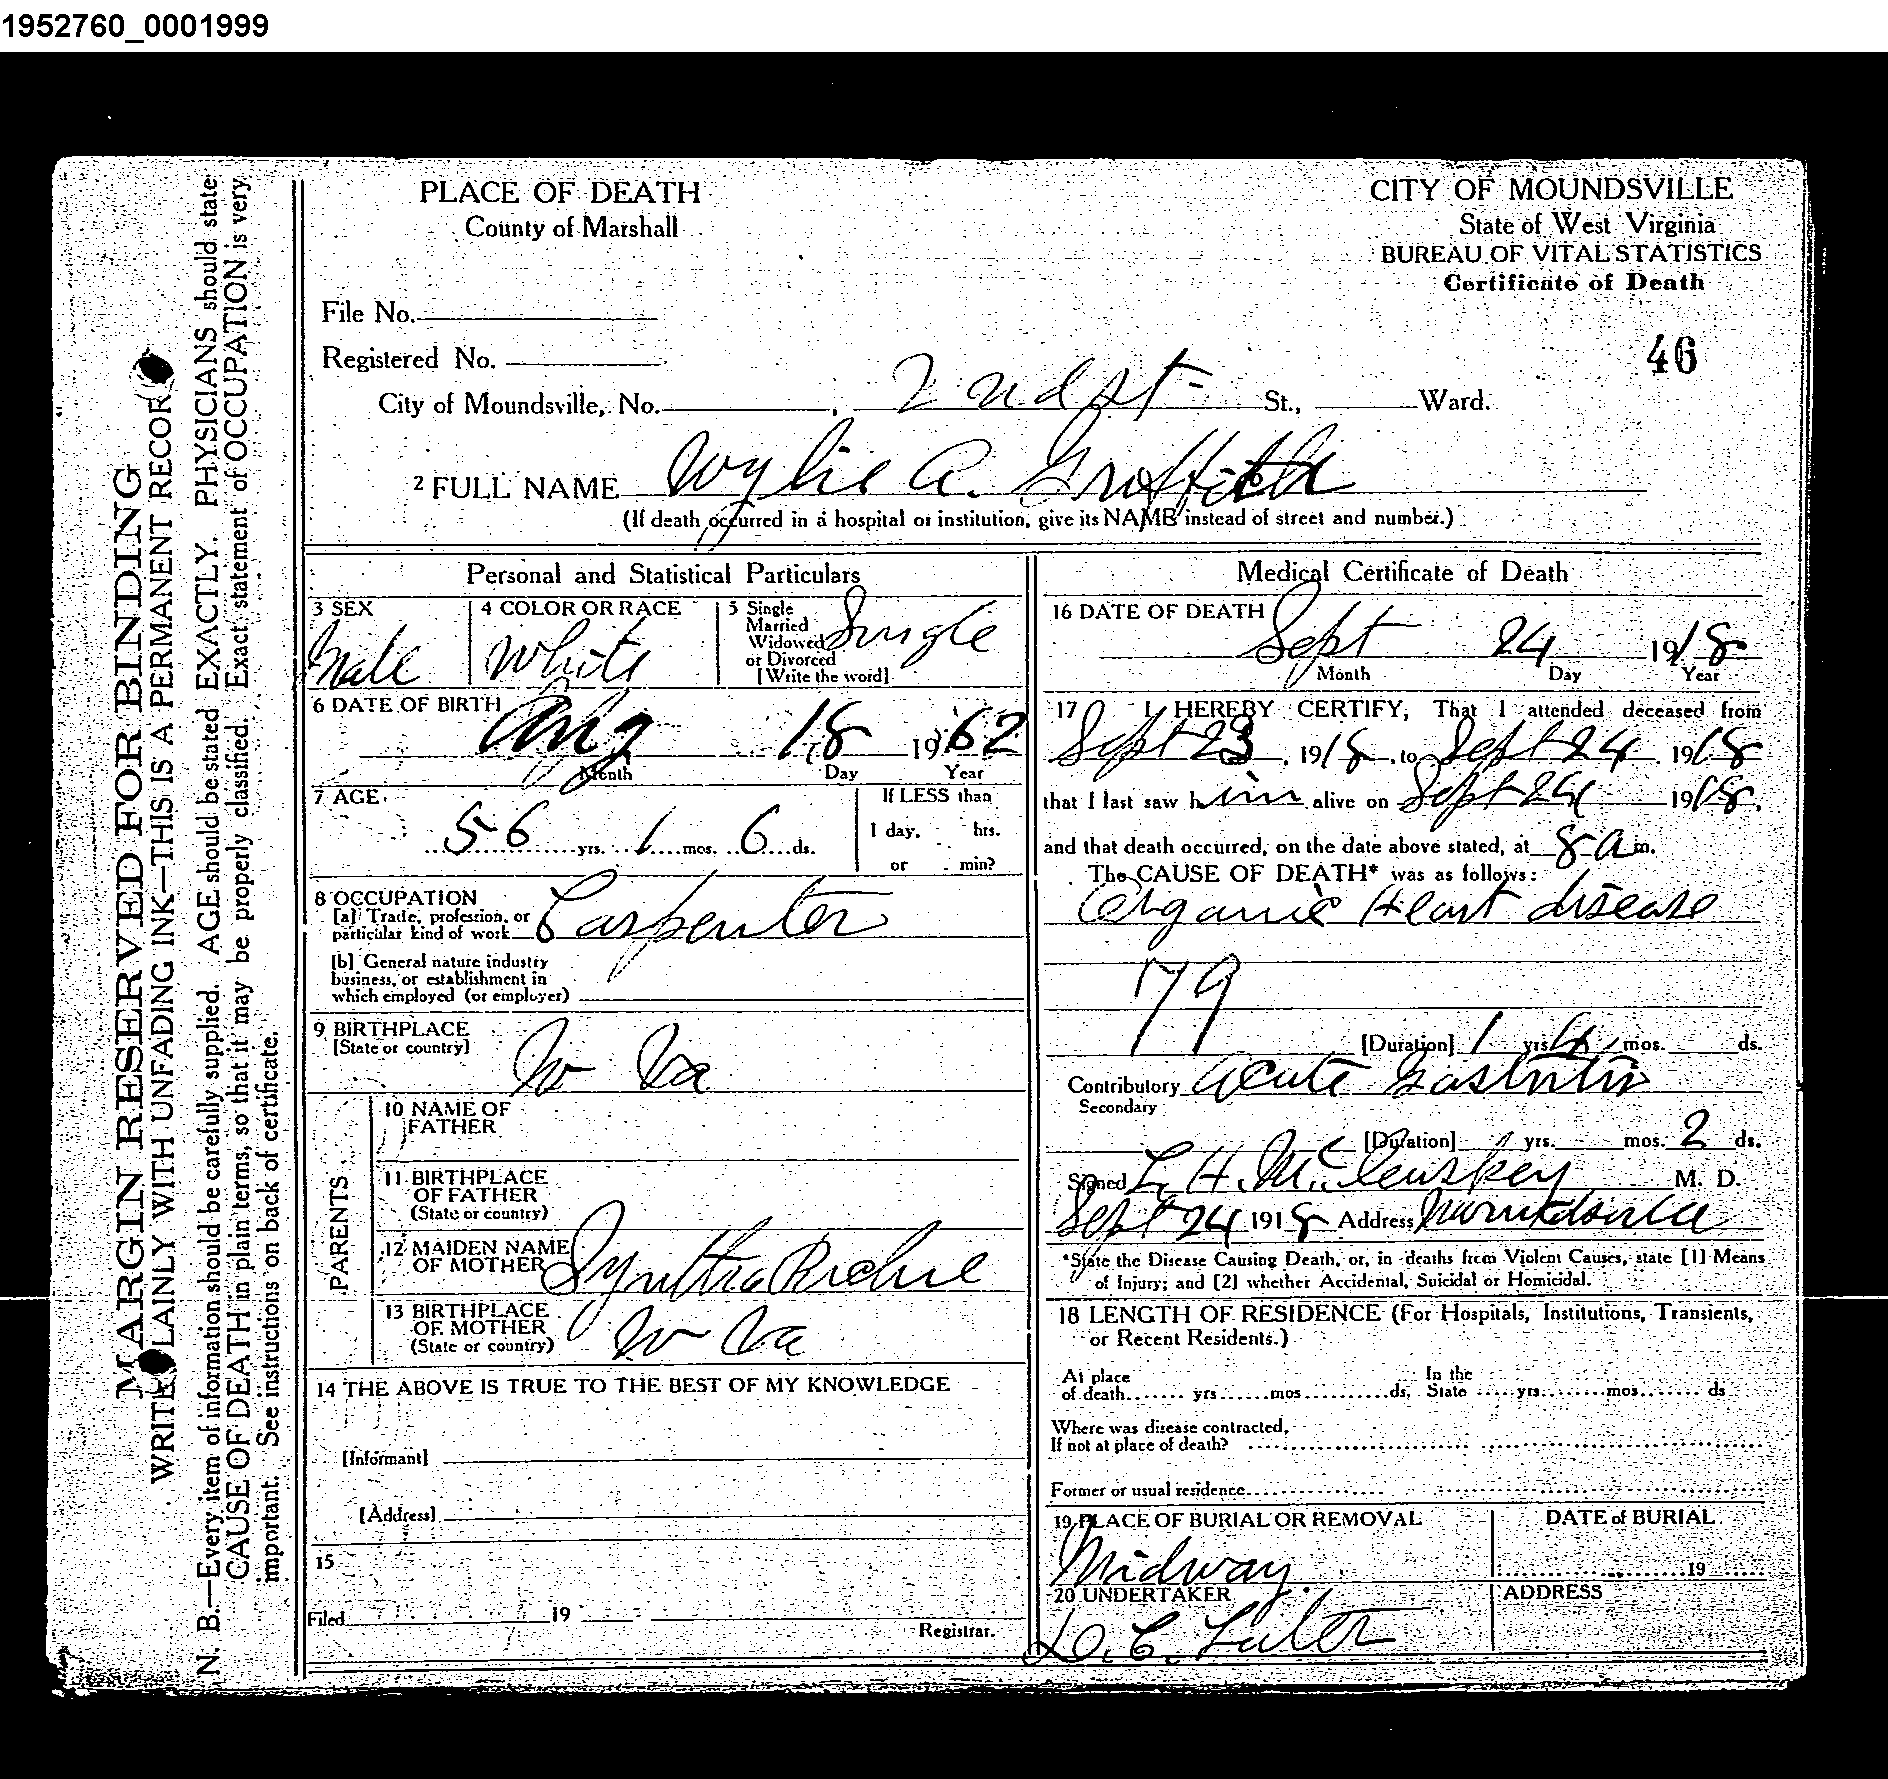 1952760_0001999
PLACE OF DEATH
County of Marshall
CITY OF MOUNDSVILLE
State of West Virginia
BUREAU OF VITAL STATISTICS
Certificate of Death
File No.
Registered No.
46
City of Moundsville, No. , 2nd st- St., Ward.
2 FULL NAME Wylie A. Groffith
(If death occurred in a hospital or institution, give its NAME instead of street and number.)
Personal and Statistical Particulars
3 SEX
Male
4 COLOR OR RACE
White
5 Single
Married
Widowed
or Divorced
[Write the word]
Single
6 DATE OF BIRTH
Aug 18 19 62
Month Day Year
7 AGE
56 yrs. 1 mos. 6 ds.
If LESS than
1 day. hrs.
or min?
8 OCCUPATION
[a] Trade, profession, or
particular kind of work Carpenter
[b] General nature industry
business, or establishment in
which employed (or employer)
9 BIRTHPLACE
[State or country]
W Va
PARENTS
10 NAME OF
FATHER
11 BIRTHPLACE
OF FATHER
(State or country)
12 MAIDEN NAME
OF MOTHER Synthia Richie
13 BIRTHPLACE
OF MOTHER
(State or country)
W Va
14 THE ABOVE IS TRUE TO THE BEST OF MY KNOWLEDGE
[Informant]
[Address]
15
Filed 19
Registrar.
Medical Certificate of Death
16 DATE OF DEATH
Sept 24 1918
Month Day Year
17 I HEREBY CERTIFY, That I attended deceased from
Sept 23, 1918, to Sept 24 1918
that I last saw him alive on Sept 24 1918.
and that death occurred, on the date above stated, at 8 a m.
The CAUSE OF DEATH* was as follows:
Organic Heart disease
79
[Duration] 1 yrs 4 mos. ds.
Contributory Acute Gastritis
Secondary
[Duration] yrs. mos. 2 ds.
Signed L. H. McCluskey M. D.
Sept 24 1918 Address Moundsville
*State the Disease Causing Death, or, in deaths from Violent Causes, state [1] Means
of Injury; and [2] whether Accidental, Suicidal or Homicidal.
18 LENGTH OF RESIDENCE (For Hospitals, Institutions, Transients,
or Recent Residents.)
At place
of death yrs mos ds. In the State yrs. mos. ds
Where was disease contracted,
If not at place of death?
Former or usual residence
19 PLACE OF BURIAL OR REMOVAL
Midway.
DATE of BURIAL
19
20 UNDERTAKER
ADDRESS
MARGIN RESERVED FOR BINDING
WRITE PLAINLY WITH UNFADING INK—THIS IS A PERMANENT RECORD
N. B.—Every item of information should be carefully supplied. AGE should be stated EXACTLY. PHYSICIANS should state
CAUSE OF DEATH in plain terms, so that it may be properly classified. Exact statement of OCCUPATION is very
important. See instructions on back of certificate.